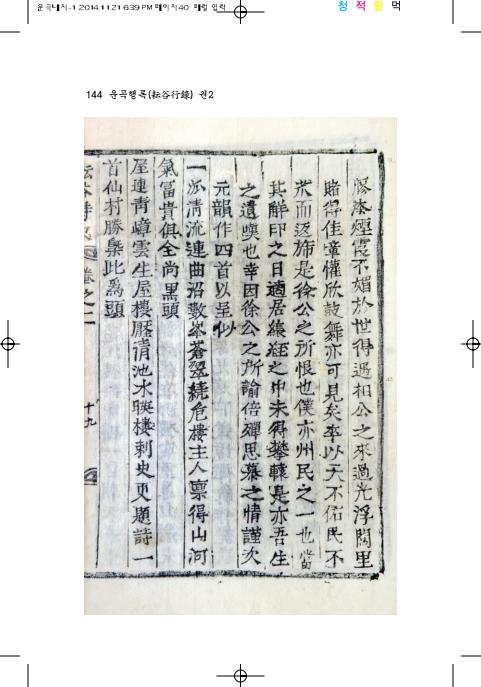 운곡내지-1 2014.11.21 6:39 PM 페이지40 매킬 입력
청 적 황 먹
144 운곡행록(耘谷行錄) 권2
膝漆煙霞不媚於世得過相公之來過光浮閭里
賭得佳章懽欣鼓舞亦可見矣率以天不佑民不
朞而返斾是徐公之所恨也僕亦州民之一也當
其解印之日適居縗絰之中未得攀轅是亦吾生
之遺嘆也幸因徐公之所諭倍殫思慕之情謹次
元韻作四首以呈似
一泒淸流連曲沼數峯蒼翠繞危樓主人稟得山河
氣富貴俱全尚黑頭
屋連靑嶂雲生屋樓壓清池水暎樓刺史更題詩一
首仙村勝槩此爲頭
卷之二
十九